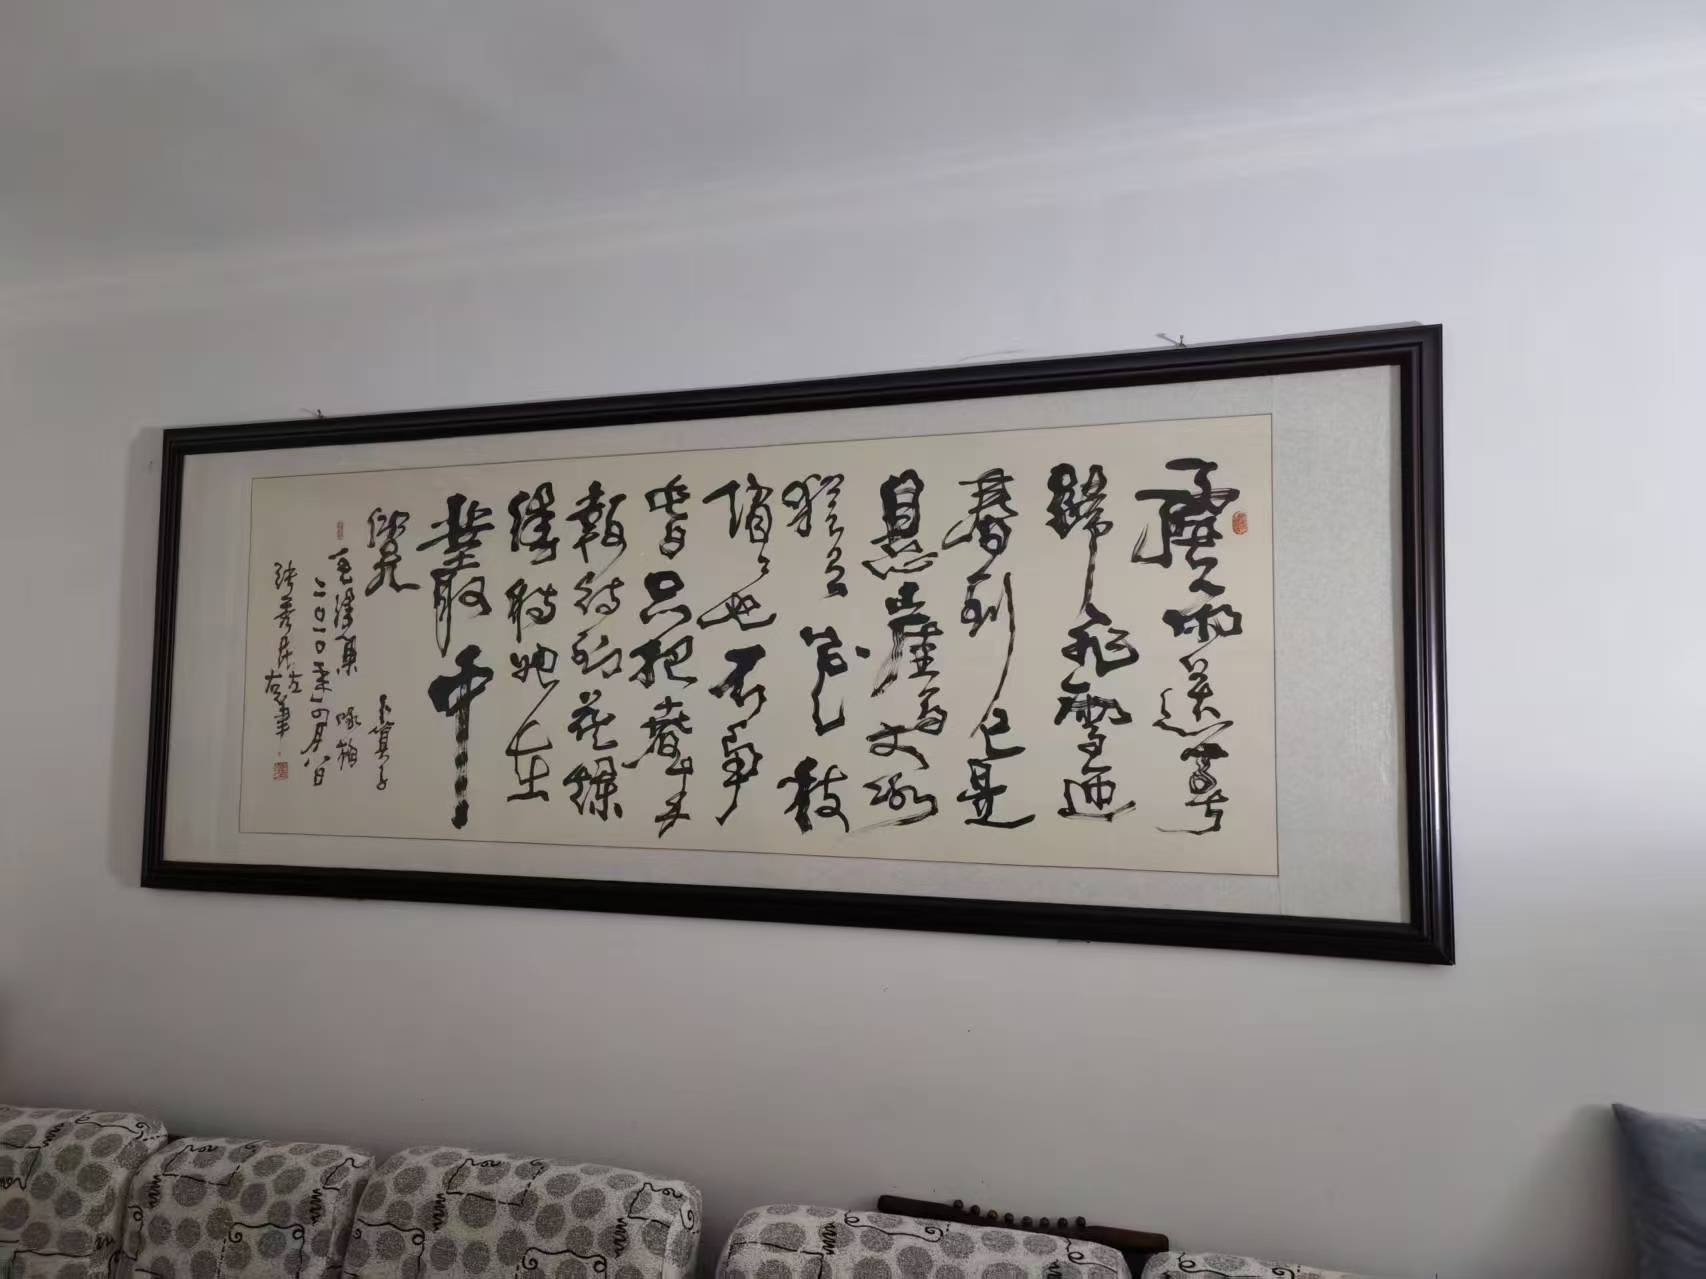 風雨送春
歸飛雪迎
春到已是
懸崖百丈冰
猶有花枝
俏俏也不爭
春只把春来
報待到山花爛
漫時她在
叢中
笑 卜算子
毛澤東 咏梅
二0一0年四月八日
张秀
左右筆